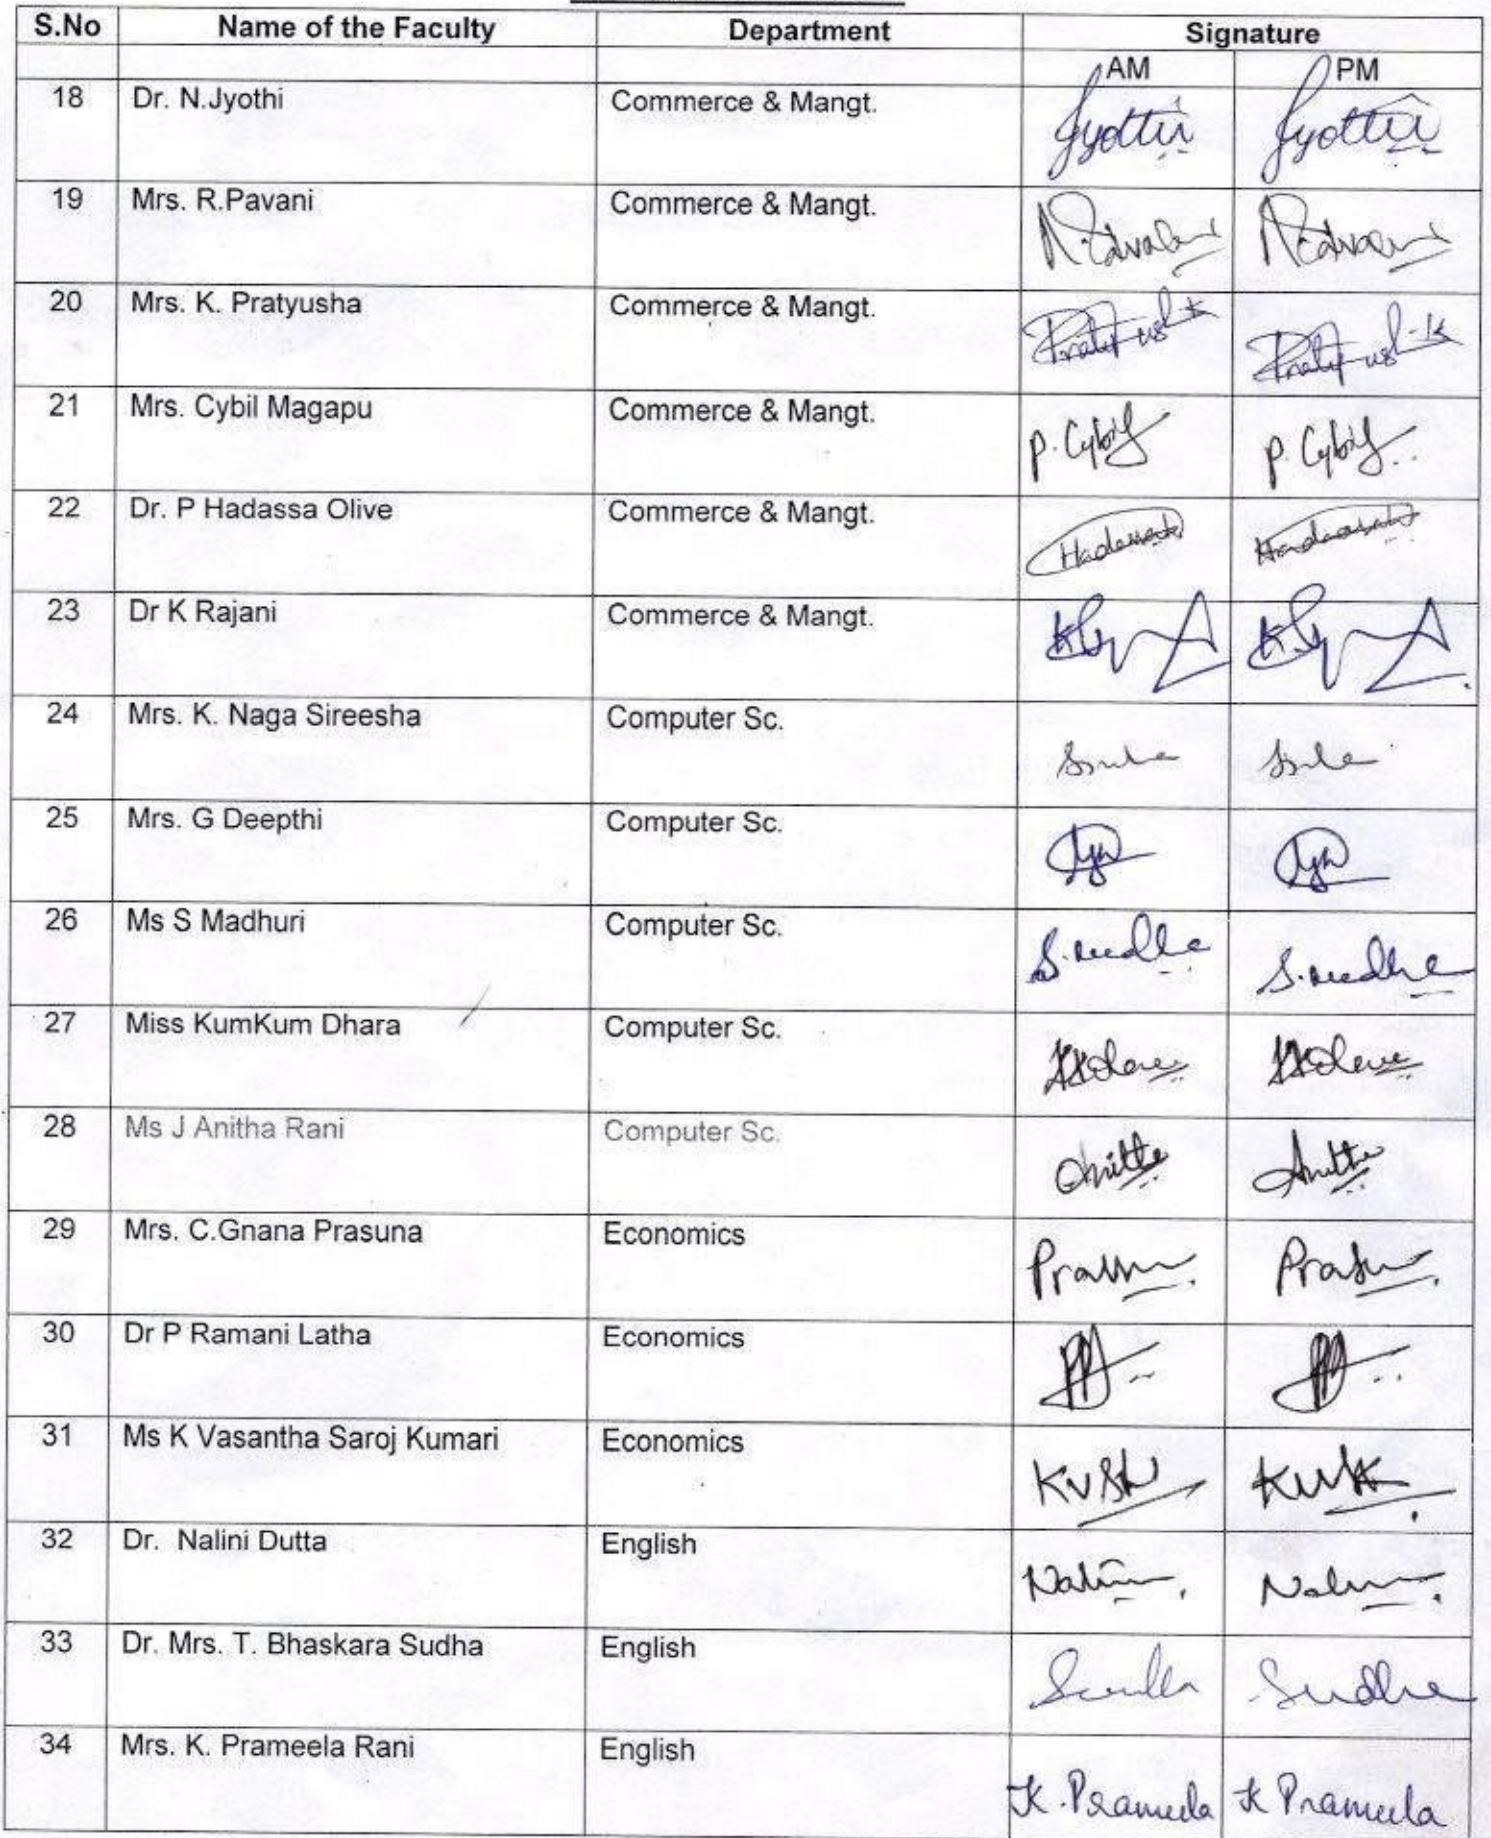 S.No Name of the Faculty Department Signature
AM PM
18 Dr. N.Jyothi Commerce & Mangt. Jyothi Jyothi
19 Mrs. R.Pavani Commerce & Mangt.
20 Mrs. K. Pratyusha Commerce & Mangt.
21 Mrs. Cybil Magapu Commerce & Mangt. P. Cybil P. Cybil
22 Dr. P Hadassa Olive Commerce & Mangt. Hadassah Hadassah
23 Dr K Rajani Commerce & Mangt.
24 Mrs. K. Naga Sireesha Computer Sc.
25 Mrs. G Deepthi Computer Sc.
26 Ms S Madhuri Computer Sc.
27 Miss KumKum Dhara Computer Sc.
28 Ms J Anitha Rani Computer Sc. Anitha Anitha
29 Mrs. C.Gnana Prasuna Economics
30 Dr P Ramani Latha Economics
31 Ms K Vasantha Saroj Kumari Economics
32 Dr.  Nalini Dutta English Nalini Nalini
33 Dr. Mrs. T. Bhaskara Sudha English Sudha Sudha
34 Mrs. K. Prameela Rani English K. Prameela K Prameela